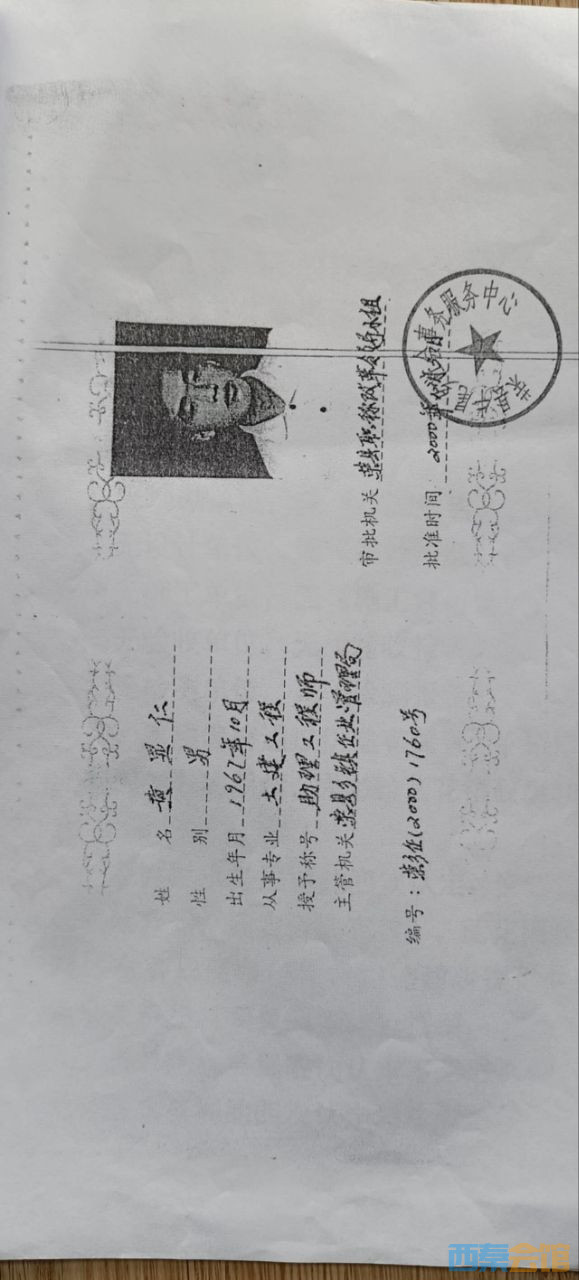 姓 名 黄显仁
性 别 男
出生年月 1967年10月
从事专业 土建工程
授予称号 助理工程师
主管机关 荣县乡镇企业管理局
编号：荣乡企(2000)1760号
审批机关 荣县职称改革领导小组
批准时间 2000年
服务中心